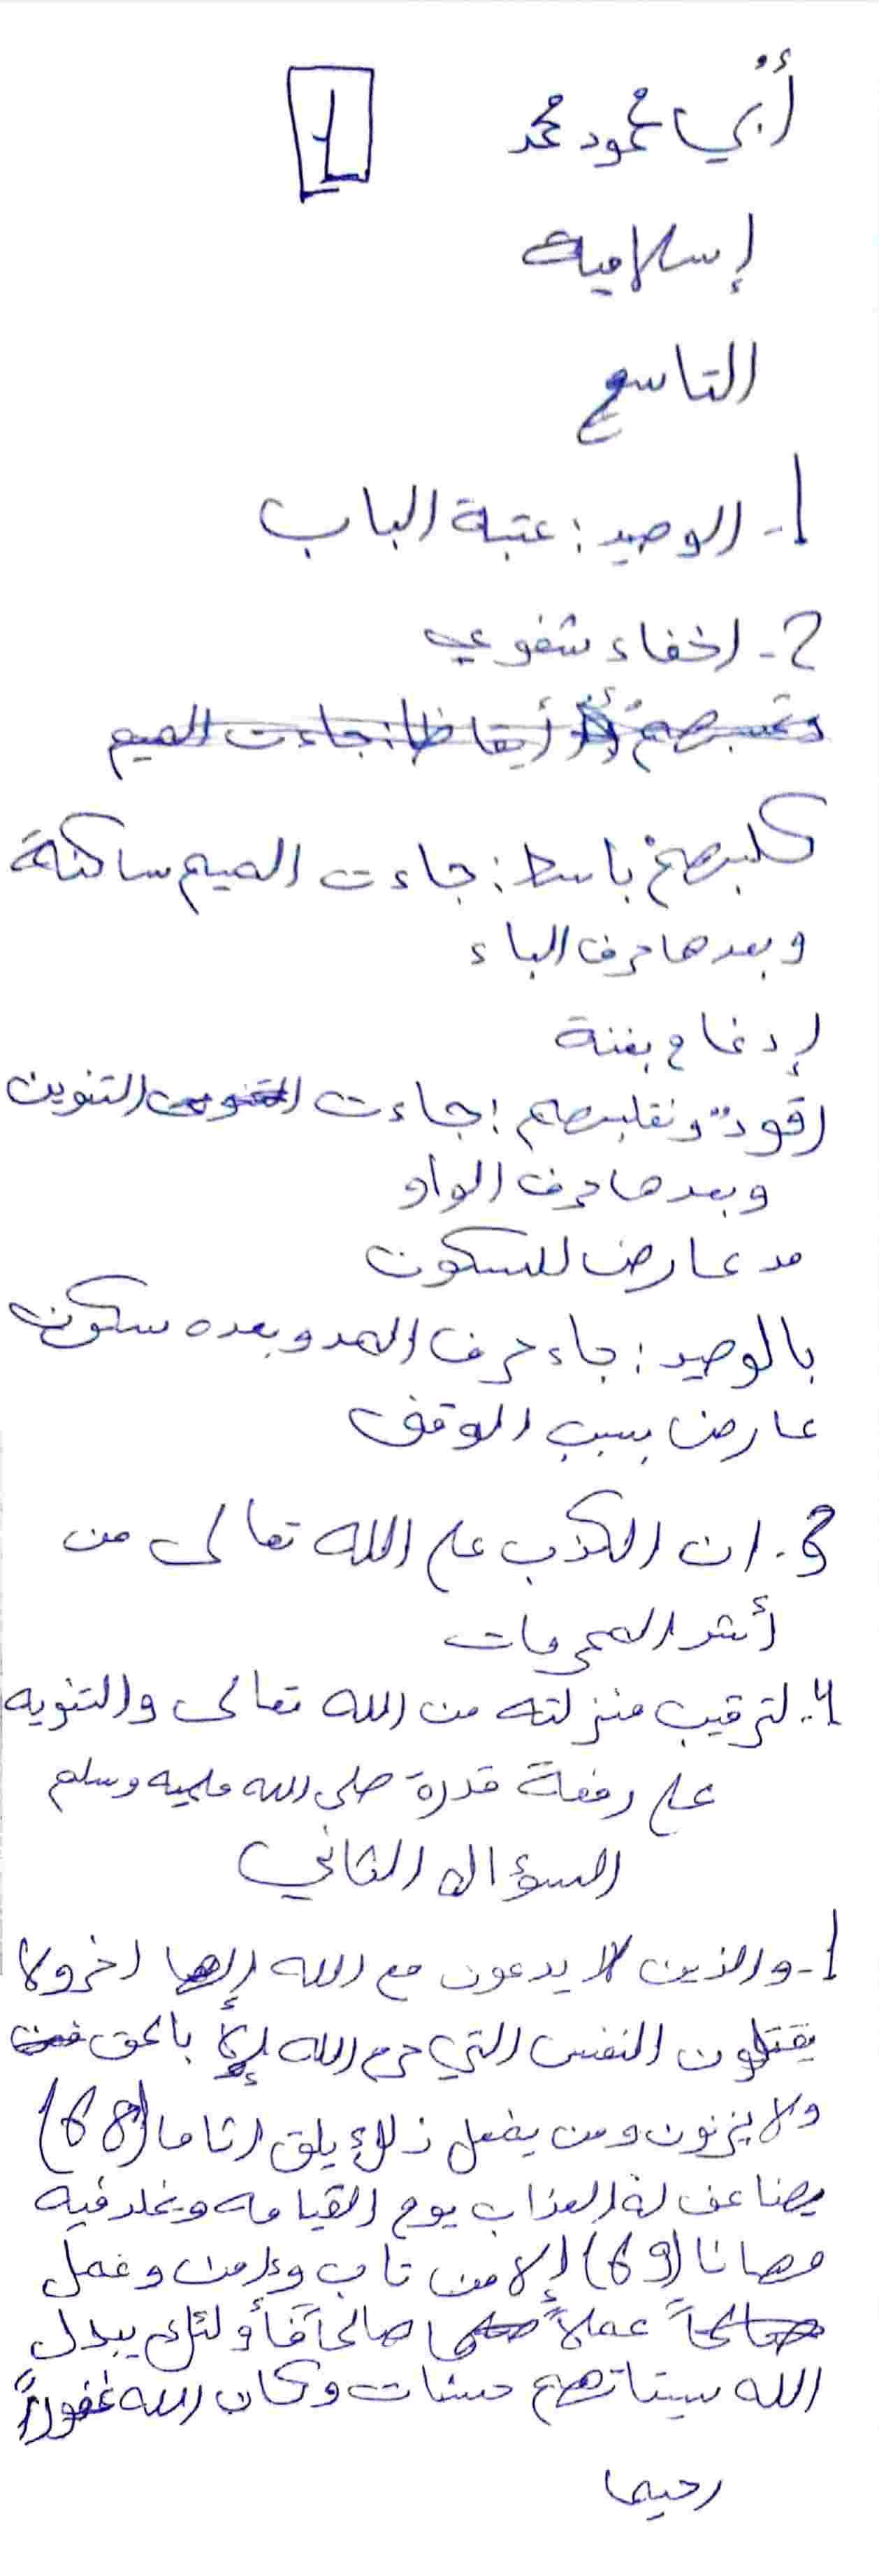 أُبي محمود محمد
1
إسلامية
التاسع
1- الوصيد : عتبة الباب
2- اخفاء شفوي
وتحسبهم أيقاظا: جاءت الميم
كلبهمْ باسط : جاءت الميم ساكنة
وبعدها حرف الباء
إدغام بغنة
رقودٌ ونقلبهم : جاءت التنوين
وبعدها حرف الواو
مد عارض للسكون
بالوصيد : جاء حرف المد وبعده سكون
عارض بسبب الوقف
3. ان الكذب على الله تعالى من
أشد المحرمات
4. لترقيب منزلته من الله تعالى والتنويه
على رفعة قدرة صلى الله عليه وسلم
السؤال الثاني
1- والذين لا يدعون مع الله إلها اخر ولا
يقتلون النفس التي حرم الله إلا بالحق
ولا يزنون ومن يفعل ذلك يلق اثاما (68)
يضاعف له العذاب يوم القيامه ويخلد فيه
مهانا (69) إلا من تاب وءامن وعمل
صالحاً عملاً صالحاً فأولئك يبدل
الله سيئاتهم حسنات وكان الله غفوراً
رحيما